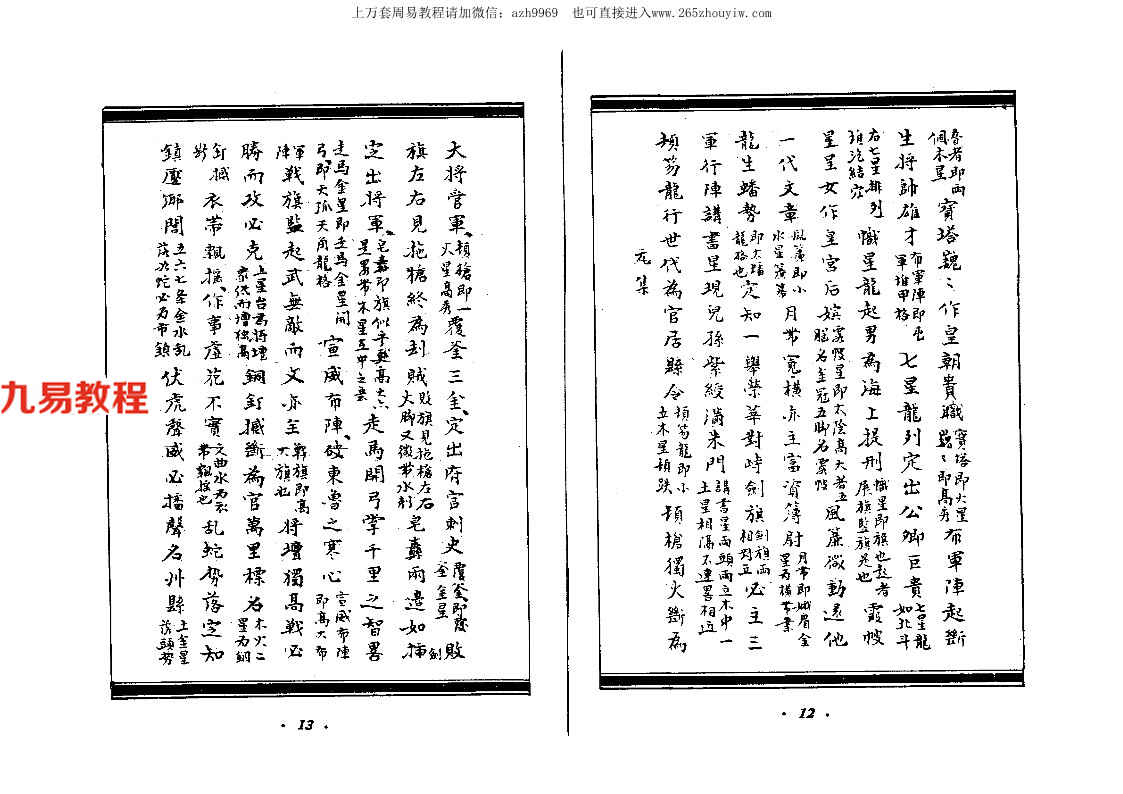 上万套周易教程请加微信：azh9969 也可直接进入www.265zhouyiw.com
昏者即兩個木星 寶塔巍々作皇朝貴職 寶塔即火星巍々即高秀 布軍陣起斷
生將帥雄才 布軍陣即屯軍堆甲格 七星龍列定出公卿巨貴 七星龍如北斗
右七星排列 幟星龍起男為海上提刑 幟星即旗也起者 霞帔
星星女作皇宮后嬪 霞帔星即太陰高大者五腦名金冠五脚名霞帔 風簾微動遠他
一代文章 風簾即小水星蕩漾 月帶冕橫亦主富資簿尉 月帶即娥眉金星為橫帶
龍生蟠勢 龍格也 定知一舉榮華對峙劍旗 劍旗兩相對立 必主三
軍行陣講書星現兒孫紫綬滿朱門 講書星兩頭兩立木中一土星相隔不連畧相迎
頓笏龍行世代為官居縣令 頓笏龍即小立木星頓跌 頓槍獨火斷為
元集
· 12 ·
大將管軍 頓槍即一火星高秀 覆釜三金定出府官刺史 覆釜即 金星 敗
旗左右見拖槍終為刮賊 敗旗見拖槍左右火脚又微帶水形 皂纛兩邊如插 劍
定出將軍 皂纛即旗似乎更高大 走馬開弓掌千里之智畧
走馬金星即走馬金星開弓即天孤天角龍格 宣威布陣破東魯之寒心 宣威布陣即高大布
軍陣 戰旗監起武無敵而文亦至 戰旗即高大旗也 將壇獨高戰必
勝而攻必克 上星台為將壇衆低而壇獨高 銅釘撼斷為官萬里標名 木火二星為銅
釘撼 衣帶飄搖作事虛花不實 文曲水為衣帶飄搖也 亂蛇勢落定知
鎮壓鄉閭 五六七条金水亂落如蛇必為市鎮 伏虎聲威必播聲名州縣 土金星落頭勢
· 13 ·
九易教程